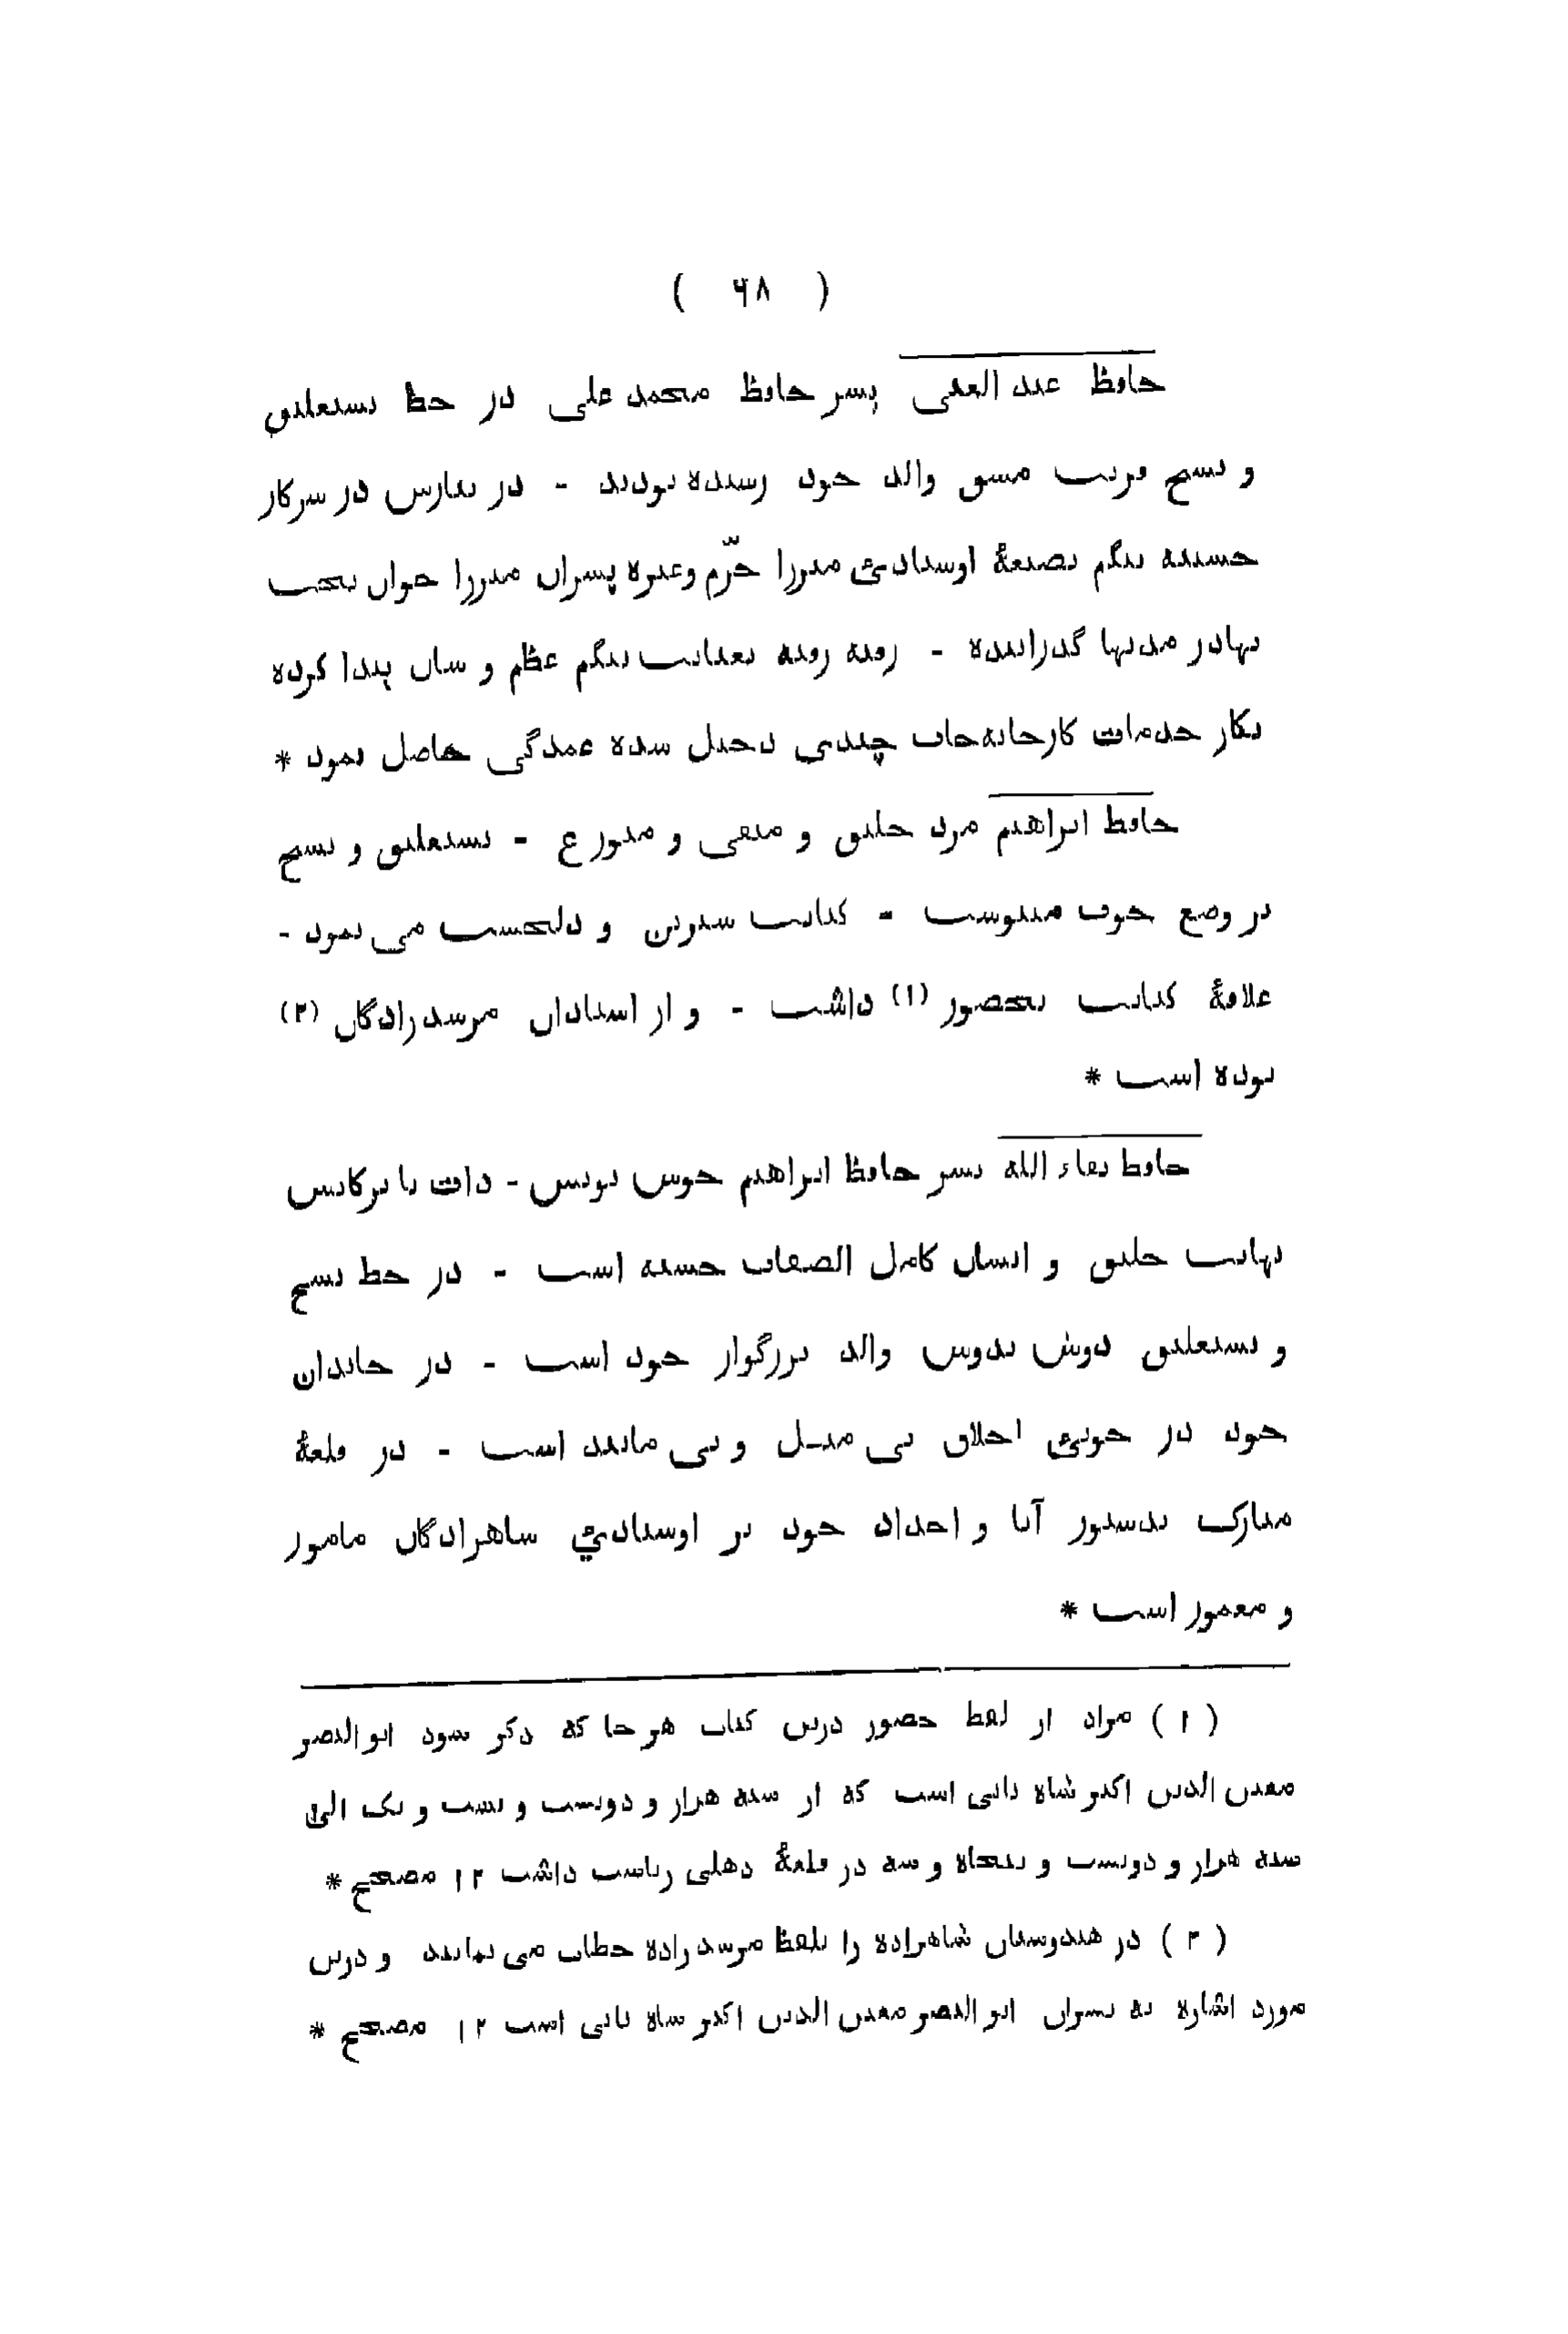 ( ۶۸ )
حافظ عبد الغنی پسر حافظ محمد علی در خط نستعلیق
و نسخ قریب مشق والد خود رسیده بودند - در بنارس در سرکار
حسینه بیگم بصیغهٔ اوستادیٔ میرزا خرّم وغیره پسران میرزا جوان بخت
بهادر مدتها گذرانیده - رفته رفته بعنایت بیگم عظم و شان پیدا کرده
بکار خدمات کارخانه‌جات چندی دخیل شده عمدگی حاصل نمود *
حافظ ابراهیم مرد خلیق و متقی و متورع - نستعلیق و نسخ
بر وضع خوب مینوشت - کتابت شیرین و دلچسپ می نمود -
علاقهٔ کتابت بحضور (۱) داشت - و از استادان مرشد زادگان (۲)
بوده است *
حافظ بقاء الله پسر حافظ ابراهیم خوش نویس - ذات با برکاتش
نهایت خلیق و انسان کامل الصفات حسنه است - در خط نسخ
و نستعلیق دوش بدوش والد بزرگوار خود است - در خاندان
خود در خوبیٔ اخلاق بی مثل و بی مانند است - در قلعهٔ
مبارک بدستور آبا و اجداد خود بر اوستادئ شاهزادگان مامور
و معمور است *
( ۱ ) مراد از لفظ حضور درین کتاب هر جا که ذکر شود ابو النصر
معین الدین اکبر شاه ثانی است که از سنه هزار و دویست و بست و یک الی
سنه هزار و دویست و پنجاه و سه در قلعهٔ دهلی ریاست داشت ۱۲ مصحح *
( ۲ ) در هندوستان شاهزاده را بلفظ مرشد زاده خطاب می نمایند و درین
مورد اشاره به پسران ابو النصر معین الدین اکبر شاه ثانی است ۱۲ مصحح *